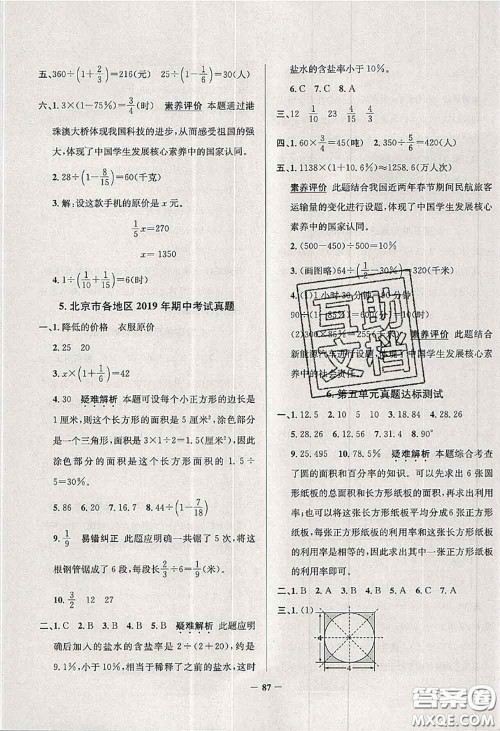 五、360÷(1+2/3)=216(元) 25÷(1-1/6)=30(人)
六、1.3×(1-75%)=3/4(时) 素养评价 本题通过港
珠澳大桥体现我国科技的进步,从而感受祖国的强
大,体现了中国学生发展核心素养中的国家认同。
2.28÷(1-8/15)=60(千克)
3.解:设这款手机的原价是x元。
1/5x=270
x=1350
4.1÷(1/10+1/15)=6(时)
5.北京市各地区2019年期中考试真题
一、1.降低的价格 衣服原价
2.25 20
3.x×(1-1/6)=42
4.30 疑难解析 本题可设每个小正方形的边长是
1厘米,则这个长方形的面积是5平方厘米,涂色部分
是一个三角形,面积是3×1÷2=1.5(平方厘米),因此
涂色部分的面积是这个长方形面积的1.5÷
5=30%。
5.86 6.20 7.16 8.44÷(1-7/18)
9.1/9 易错纠正 此题应明确一共锯了5次,将这
根钢管锯成了6段,每段长2/3÷6=1/9(米)。
10.3/2 12 27
二、1.C 2.B 3.C 4.B 5.B 疑难解析 此题应
明确后加入的盐水的含盐率是1÷(1+10)×100%,约
是9.1%,小于10%,相当于稀释了之前的盐水,因此
盐水的含盐率小于10%。
6.C 7.C 8.A
三、12 1/10 23 3/4 15
四、1.60×3/4=45(吨) 2.350÷5/6=420(人)
五、1.1138×(1+10.6%)≈1258.6(万人次)
素养评价 此题结合我国近两年春节期间民航旅客
运输量的变化进行设题,体现了中国学生发展核心
素养中的国家认同。
2.(500-450)÷500=10%
3.(画图略)
素养评价 此题结合
养中的社会责任。
6.第五单元真题达标测试
9.25.495 10.78.5% 疑难解析 本题综合考查
了圆的面积和百分率的知识。可以先求出6张圆
形纸板的总面积和长方形纸板的面积,再求出利用
率;也可以将长方形纸板平均分成6张正方形纸
板,每张正方形纸板的利用率都是相等的,因此其中
一张正方形纸板的利用率就是这张长方形纸板
的利用率。
二、1.C 2.B 3.A 4.C 5.B
三、1.(1)
4
4
87
互助
文档
答案圈
MXQE.COM